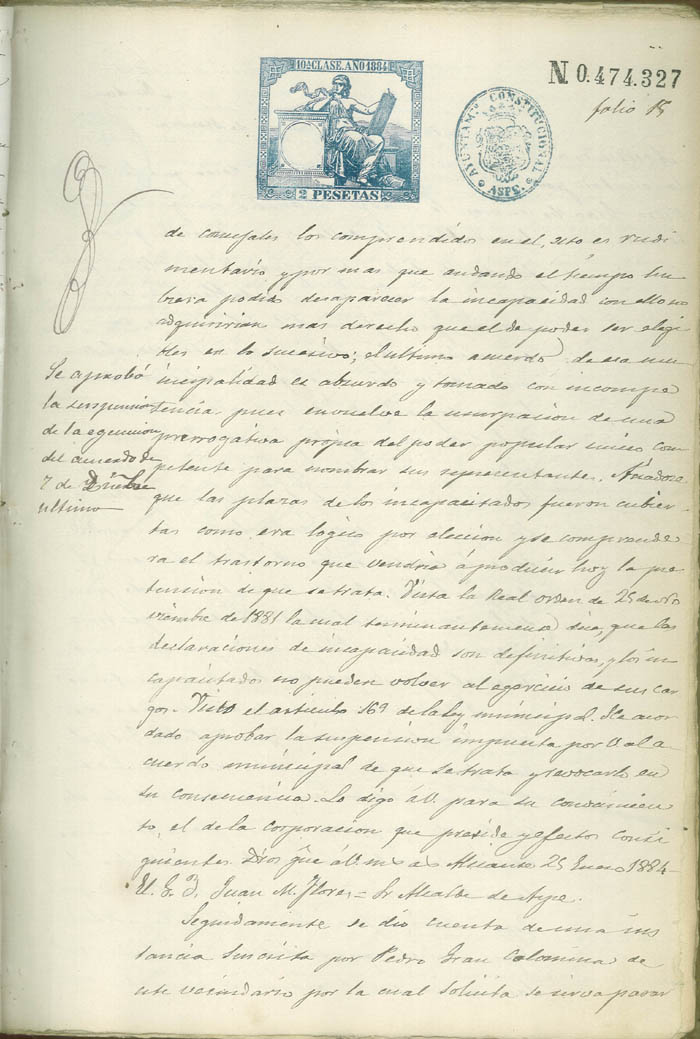 10ª CLASE. AÑO 1884
2 PESETAS
N. 0.474.327
AYUNTAM.TO CONSTITUCIONAL
ASPE.
folio 15
de concejales los comprendidos en el, esto es rudi
mentario y por mas que andando el tiempo hu
biera podido desaparecer la incapacidad con ello no
adquiririan mas derecho que el de poder ser elegi
bles en lo sucesivo; el ultimo acuerdo de esa mu
nicipalidad es absurdo y tomado con incompe
tencia, pues envuelve la usurpacion de una
prerrogativa propia del poder popular unico com
petente para nombrar sus representantes. Añádase
que las plazas de los incapacitados fueron cubier
tas como era logico por eleccion y se comprende
ra el trastorno que vendria á producir hoy la pre
tension de que se trata. Vista la Real orden de 25 de No
viembre de 1881 la cual terminantemente dice, que las
declaraciones de incapacidad son definitivas, y los in
capacitados no pueden volver al egercicio de sus car
gos. Visto el articulo 169 de la Ley municipal. He acor
dado aprobar la suspension impuesta por V. al a
cuerdo municipal de que se trata y revocarlo en
su consecuencia. Lo digo á V. para su conocimien
to, el de la corporacion que preside y efectos consi
guientes. Dios gue á V. ms as Alicante 25 Enero 1884
El G. I. Juan M. Flores = Sr Alcalde de Aspe.
Seguidamente se dio cuenta de una ins
tancia suscrita por Pedro Gran Colomina de
este vecindario por la cual solicita se sirva pasar
Se aprobó
la suspension
de la egecucion
del acuerdo de
7 de Dicbre
ultimo